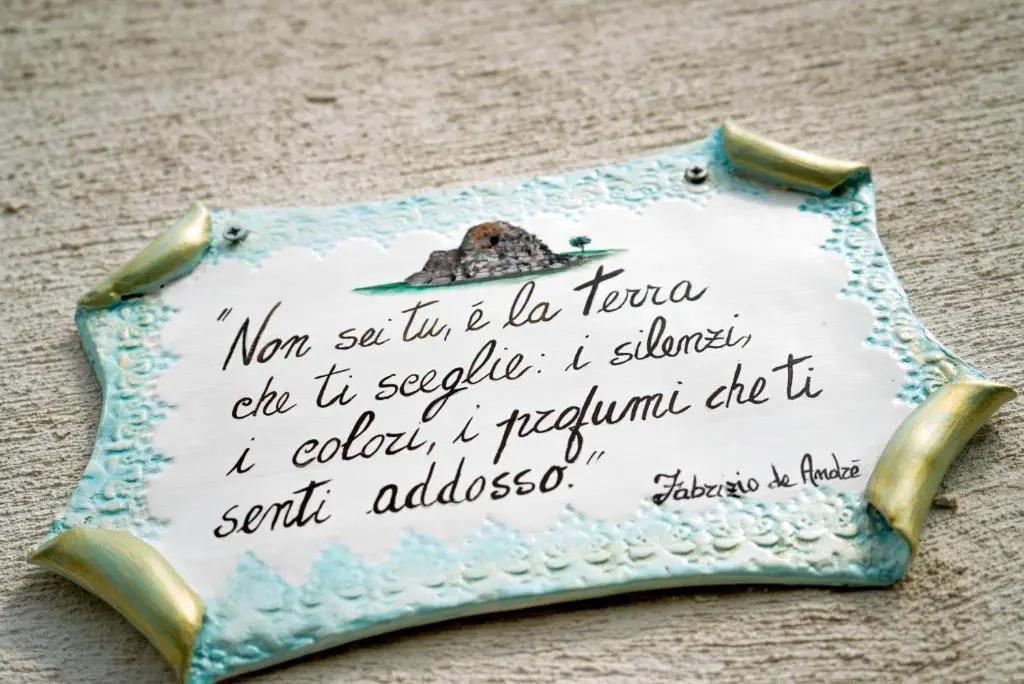 "Non sei tu, é la Terra
che ti sceglie: i silenzi,
i colori, i profumi che ti
senti addosso."
Fabrizio de André